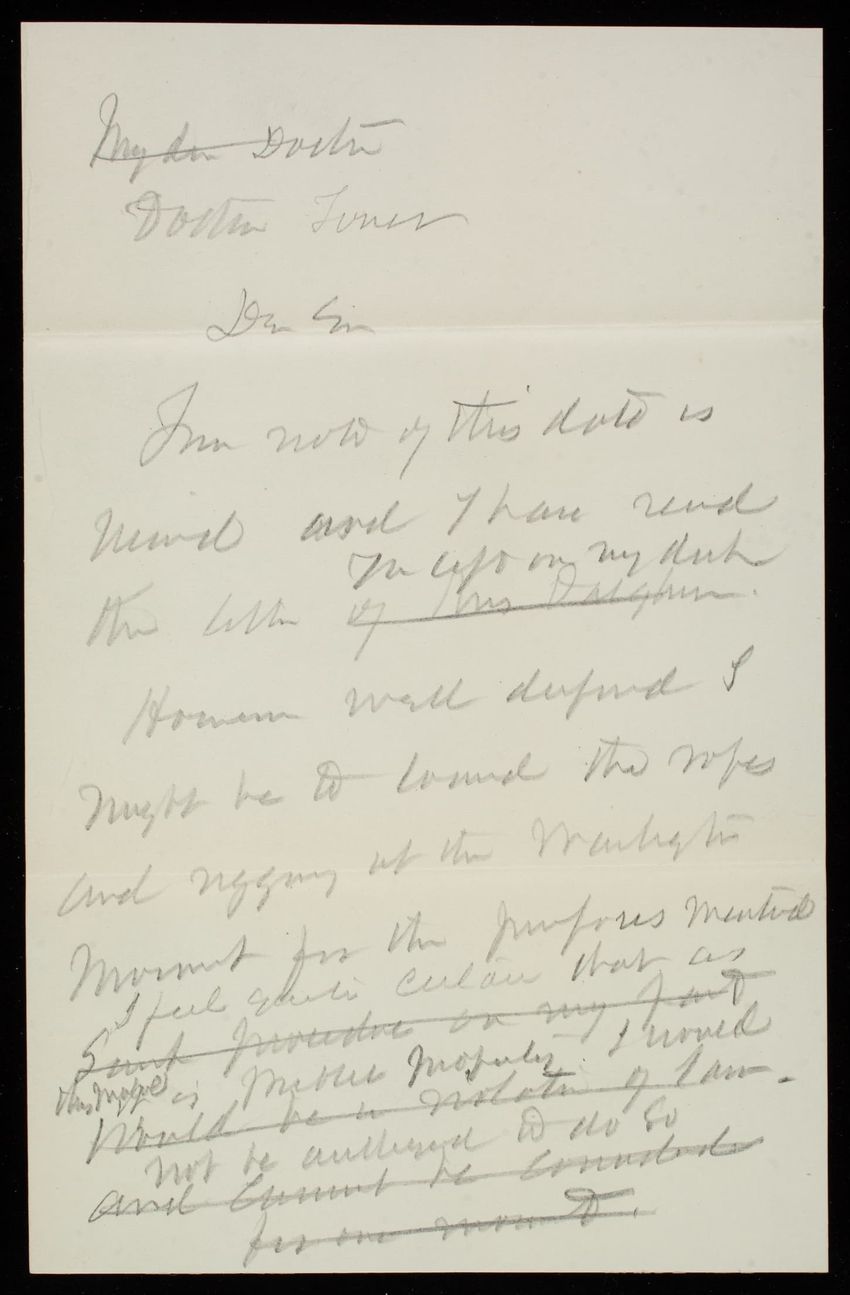 My dear Doctor
Doctor Toner
Dear Sir
Your note of this date is
received and I have read
the letter of Mrs Dahlgren.
you left on my desk
However well disposed I
might be to loand the ropes
and rigging at the Washington
Monument for the purposes mentioned
I feel quite certain that as
Such procedure on my part
this rope is Public Property I would
would be a violation of law.
not be authorized to do so
and cannot be considered
for one moment.